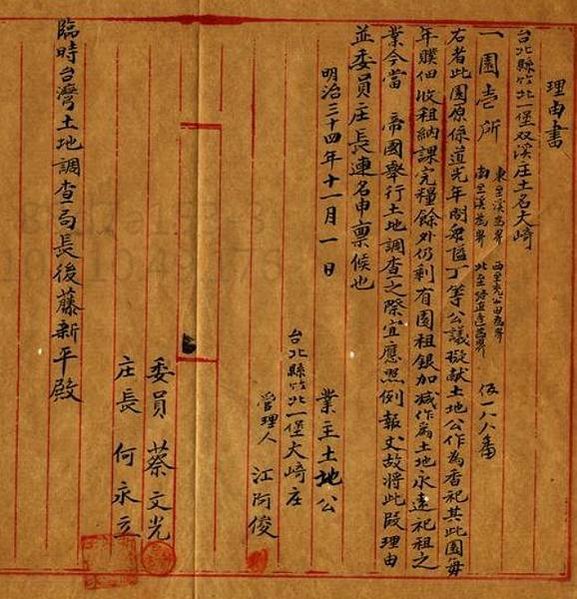 理由書
台北縣竹北一堡双溪庄土名大崎
一園壹所 東至溪為界 西至充公田為界 南至溪為界 北至 為界 仮一八八番
右者此園原係道光年間 等公議 献土地公作為香祀其此園每
年贌佃收租納課完糧餘外仍剩有園租銀加减作為土地永遠祀租之
業今當 帝國舉行土地調查之際宜應照例報丈故將此段理由
並委員庄長連名申稟候也
明治三十四年十一月一日
業主土地公
台北縣竹北一堡大崎庄
管理人 江阿俊
委員 蔡文光
庄長 何永立
臨時台灣土地調查局長後藤新平殿